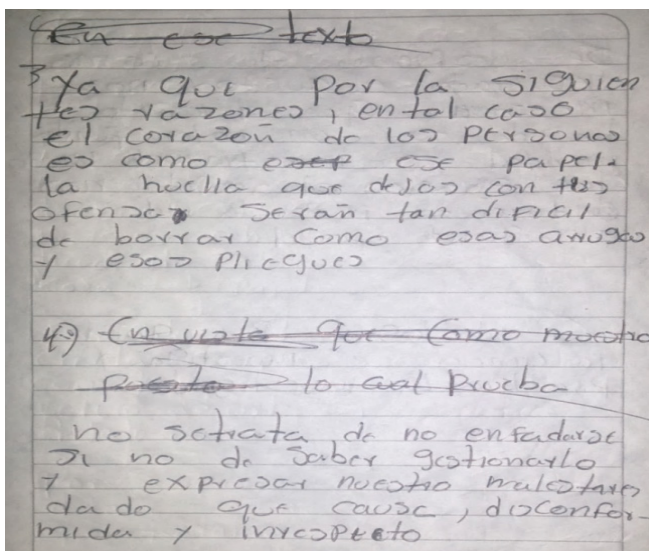 En ese texto
3 Ya que por la siguien
tes razones, en tal caso
el corazon de las personas
es como ese papel.
la huella que dejas con tus
ofensas seran tan dificil
de borrar como esas arrugas
y esos pliegues
4) En vista que como muestra
lo cual prueba
no setrata de no enfadarse
si no de saber gestionarlo
y expresar nuestro malestares
dado que causa, disconfor-
mida y irrespeto